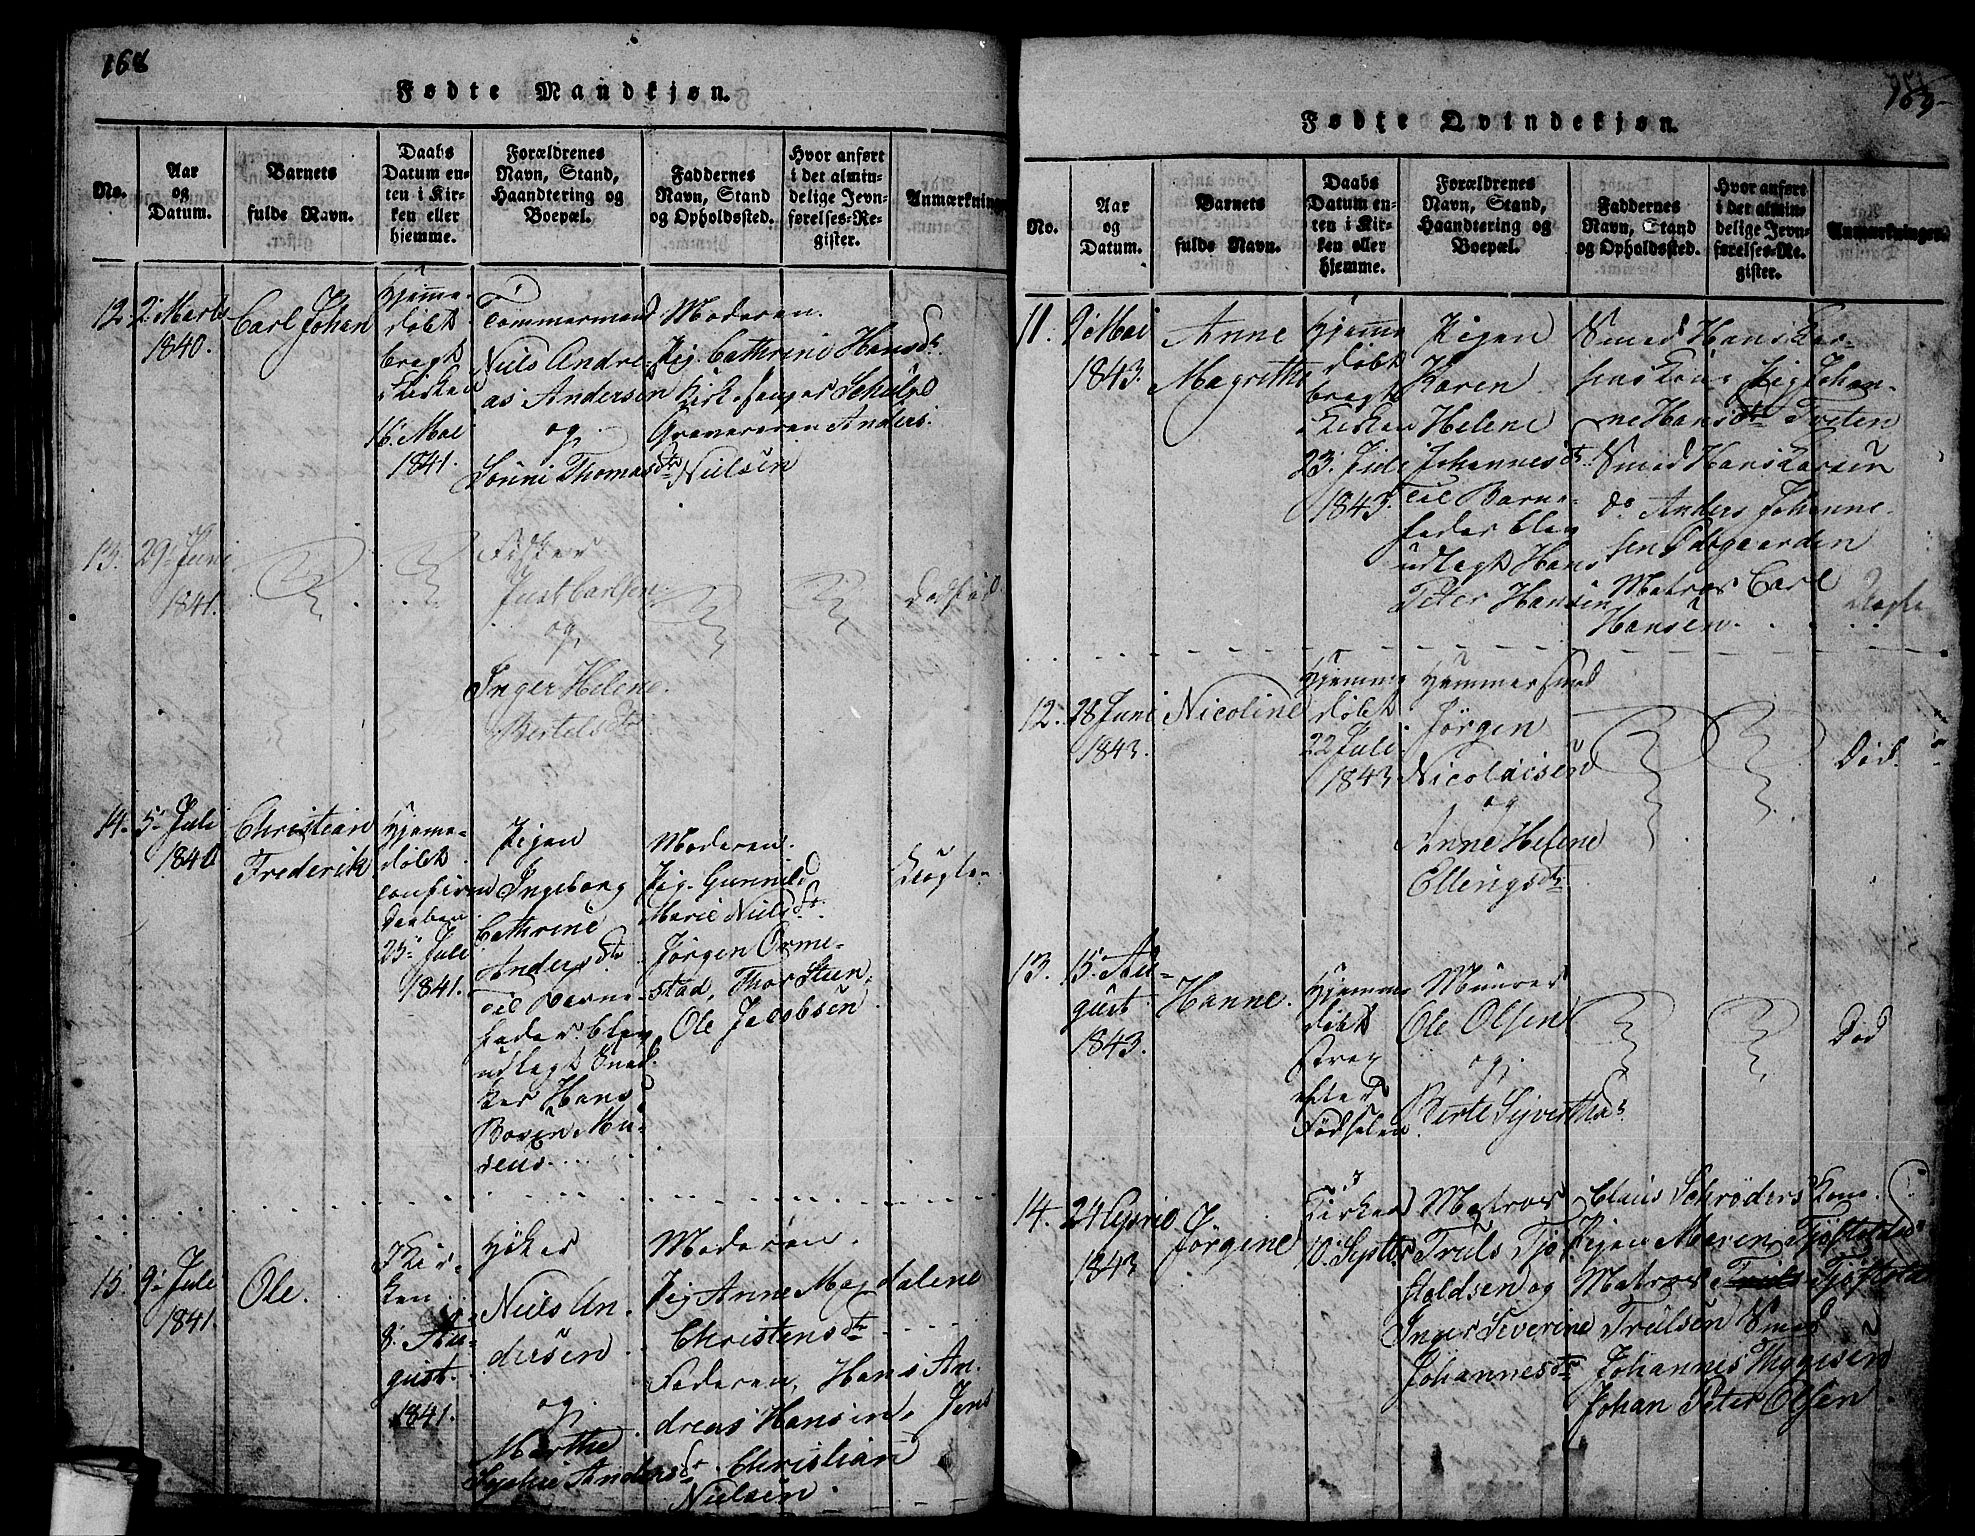 168
Fødte Mandkjøn.
No.
Aar
og
Datum.
Barnets
fulde Navn.
Daabs
Datum en-
ten i Kir-
ken eller
hjemme.
Forældrenes
Navn, Stand,
Haandtering og
Boepæl.
Faddernes
Navn, Stand
og Opholdssted.
Hvor anført
i det almin-
delige Jevn-
førelses-Re-
gister.
Anmærkninge
12.
2 Marts
1840.
Carl Johan
Hjemme-
døbt
bragt
i Kirken
16. Mai
1841.
Tömmermand
Niels Andre-
as Andersen
og
Thomasdtr
Moderen.
Pig. Cathrine Hansdtr
Kirkesanger
Graveren Anders
Nielsen
13.
29. Juni
1841.
Fisker
Just Carlsen
og
Inger Helene
Bertelsdtr
Dødfød
14.
5. Juli
1840
Christian
Frederik
Hjemme-
døbt
confirm
Daaben
25. Juli
1841.
Pigen
Ingeborg
Cathrine
Andersdtr
Til Barne-
fader blev
udlagt Sned-
ker Hans
Boysen Mu-
seus.
Moderen.
Pig. Gunnild
Marie Nielsdtr
Jørgen Orme-
stad, Thor Steen,
Ole Jacobsen
Uægte
15.
9. Juli
1841.
Ole.
I Kir-
ken
8. Au-
gust.
1841.
Høker
Niels An-
dersen
og
Marthe
Sophie Andersdtr
Moderen.
Pig Anne Magdalene
Christensdtr
Faderen, Hans An-
dreas Hansen, Jens
Christian
Nielsen
Fødte Qvindekjøn.
No.
Aar
og
Datum.
Barnets
fulde Navn.
Daabs
Datum en-
ten i Kir-
ken eller
hjemme.
Forældrenes
Navn, Stand,
Haandtering og
Boepæl.
Faddernes
Navn, Stand
og Opholdssted.
Hvor anført
i det almin-
delige Jevn-
førelses-Re-
gister.
Anmærkninger.
11.
9. Mai
1843.
Anne
Magrethe
Hjemme
døbt
bragt
i Kirken
23. Juli
1843.
Pigen
Karen
Helene
Johannesdtr
Til Barne-
fader blev
udlagt Hans
Peter Hansen
Smed Hans Lar-
sens Kone, Pig Johan-
ne Hansdtr Tveten
Smed Hans Larsen
do Anders Johanne-
sen Odegaarden
Matros Carl
Hansen.
Uægte
12.
28 Juni
1843.
Nicoline
Hjemme
døbt
22 Juli
1843
Hammersmed
Jørgen
Nicolaisen
og
Anne Helene
Ellingsdtr
Død.
13.
15. Au-
gust.
1843.
Hanne.
Hjemme
døbt
strax
efter
Fødselen.
Muurer
Ole Olsen
og
Berte Syverthsdtr
Død
14.
24 April
1843
Jørgine
I Kirken
10. Septbr
Matros
Truls Tjø-
stoldsen og
Inger Severine
Johannesdtr
Claus Schrøders Kone.
Pigen Maren Tjøstoldsdtr
Matros Truls Tjøstol
Trulsen Smed
Johannes Wiggesen
Johan Peter Olsen